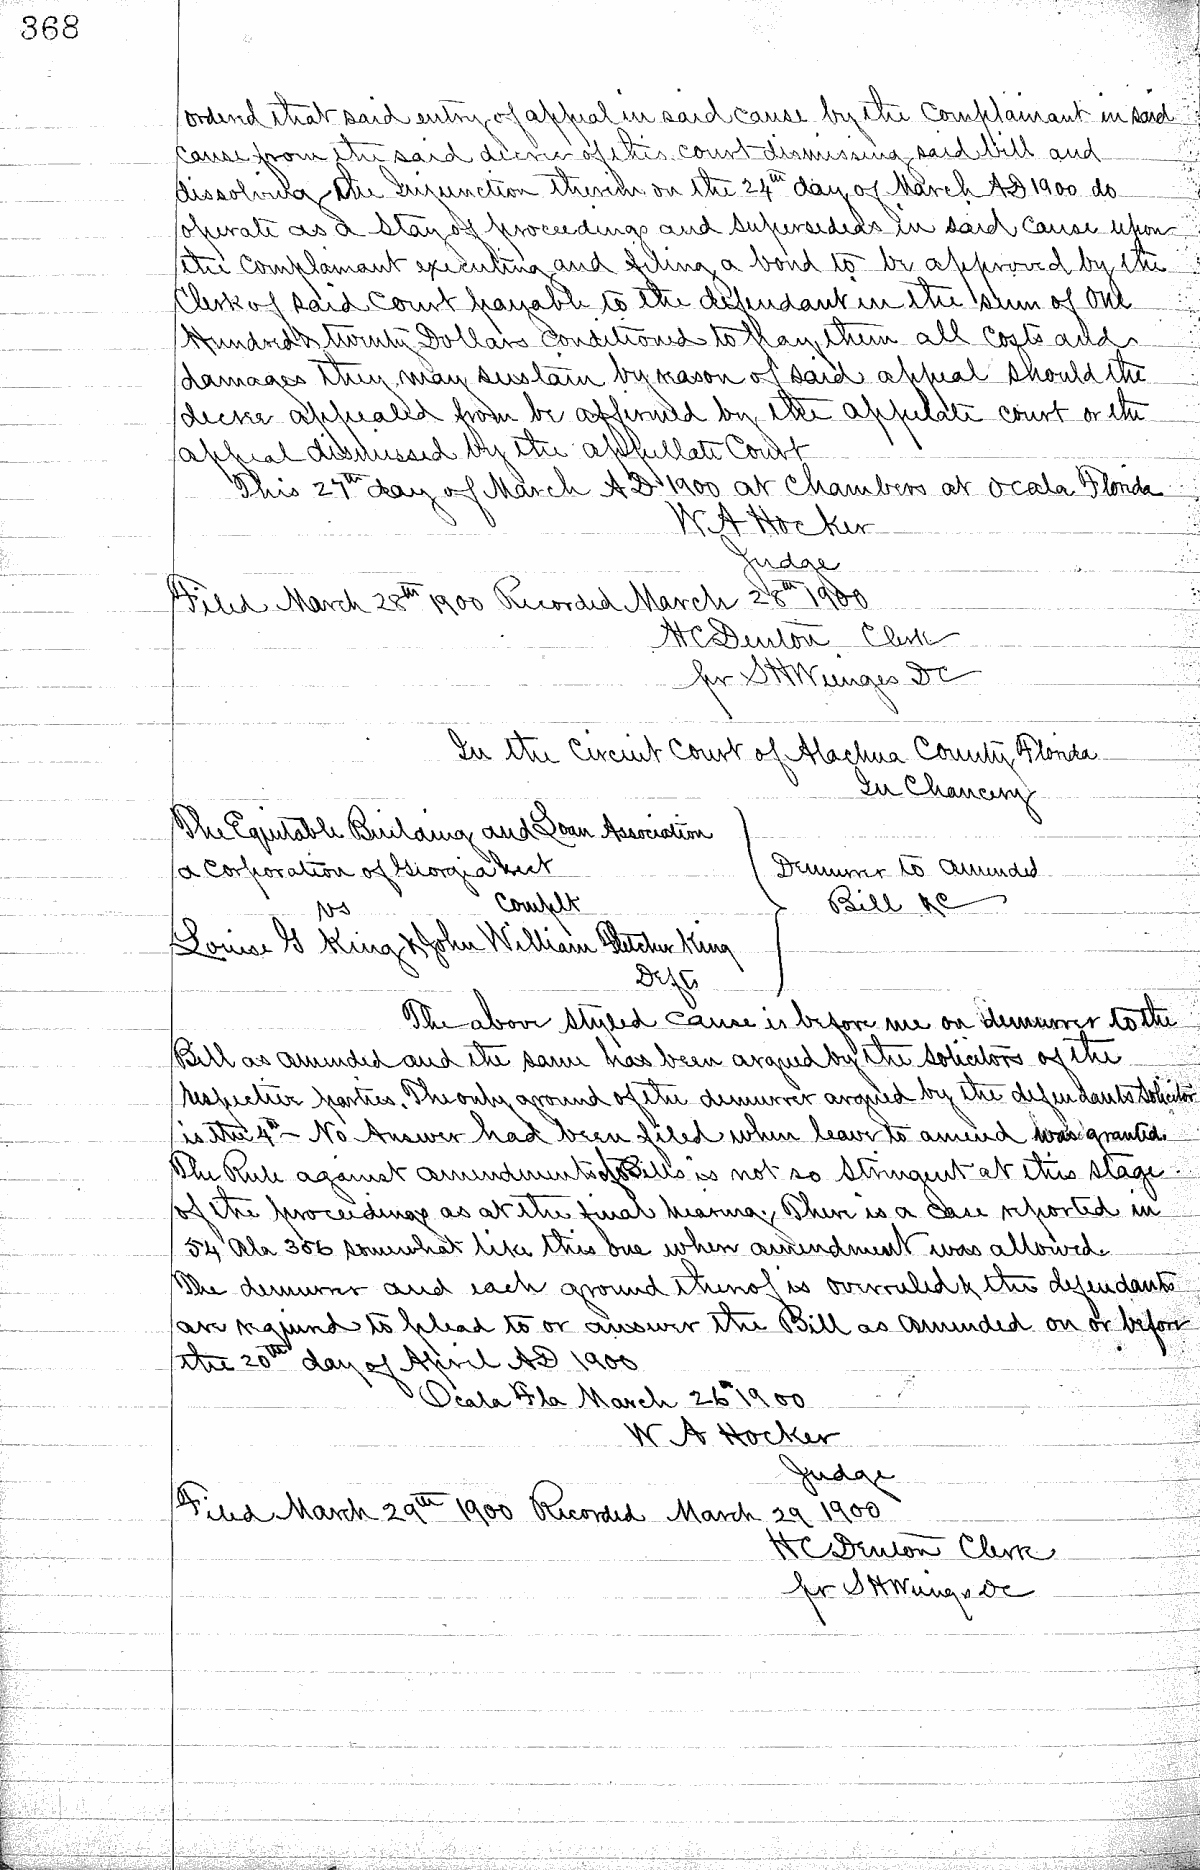 368
ordered that said entry of appeal in said cause by the Complainant in said
cause from the said decree of this court dismissing said bill and
dissolving the Injunction therein on the 24th day of March AD 1900 do
operate as a stay of proceedings and supersedeas in said cause upon
the Complainant executing and filing a bond to be approved by the
Clerk of said Court payable to the defendant in the sum of One
Hundred & twenty Dollars conditioned to pay them all costs and
damages they may sustain by reason of said appeal should the
decree appealed from be affirmed by the appelate court or the
appeal dismissed by the appellate Court
This 27th day of March AD 1900 at Chambers at Ocala Florida
W A Hocker
Judge
Filed March 28th 1900 Recorded March 28th 1900
H C Denton Clerk
pr S H Wienges DC
In the Circuit Court of Alachua County Florida
In Chancery
The Equitable Building and Loan Association
a Corporation of Georgia
Complt
vs
Louise G King & John William Fletcher King
Defts
Demurrer to amended
Bill &C
The above styled cause is before me on demurrer to the
Bill as amended and the same has been argued by the Solicitors of the
respective parties. The only ground of the demurrer argued by the defendants Solicitor
is the 4th – No Answer had been filed when leave to amend was granted.
The Rule against amendments of Bills is not so stringent at this stage
of the proceedings as at the final hearing. There is a case reported in
54 Ala somewhat like this one when amendment was allowed.
The demurrer and each ground thereof is overruled & the defendants
are required to plead to or answer the Bill as amended on or before
the 20th day of April AD 1900
Ocala Fla March 26th 1900
W A Hocker
Judge
Filed March 29th 1900 Recorded March 29 1900
H C Denton Clerk
pr S H Wienges DC